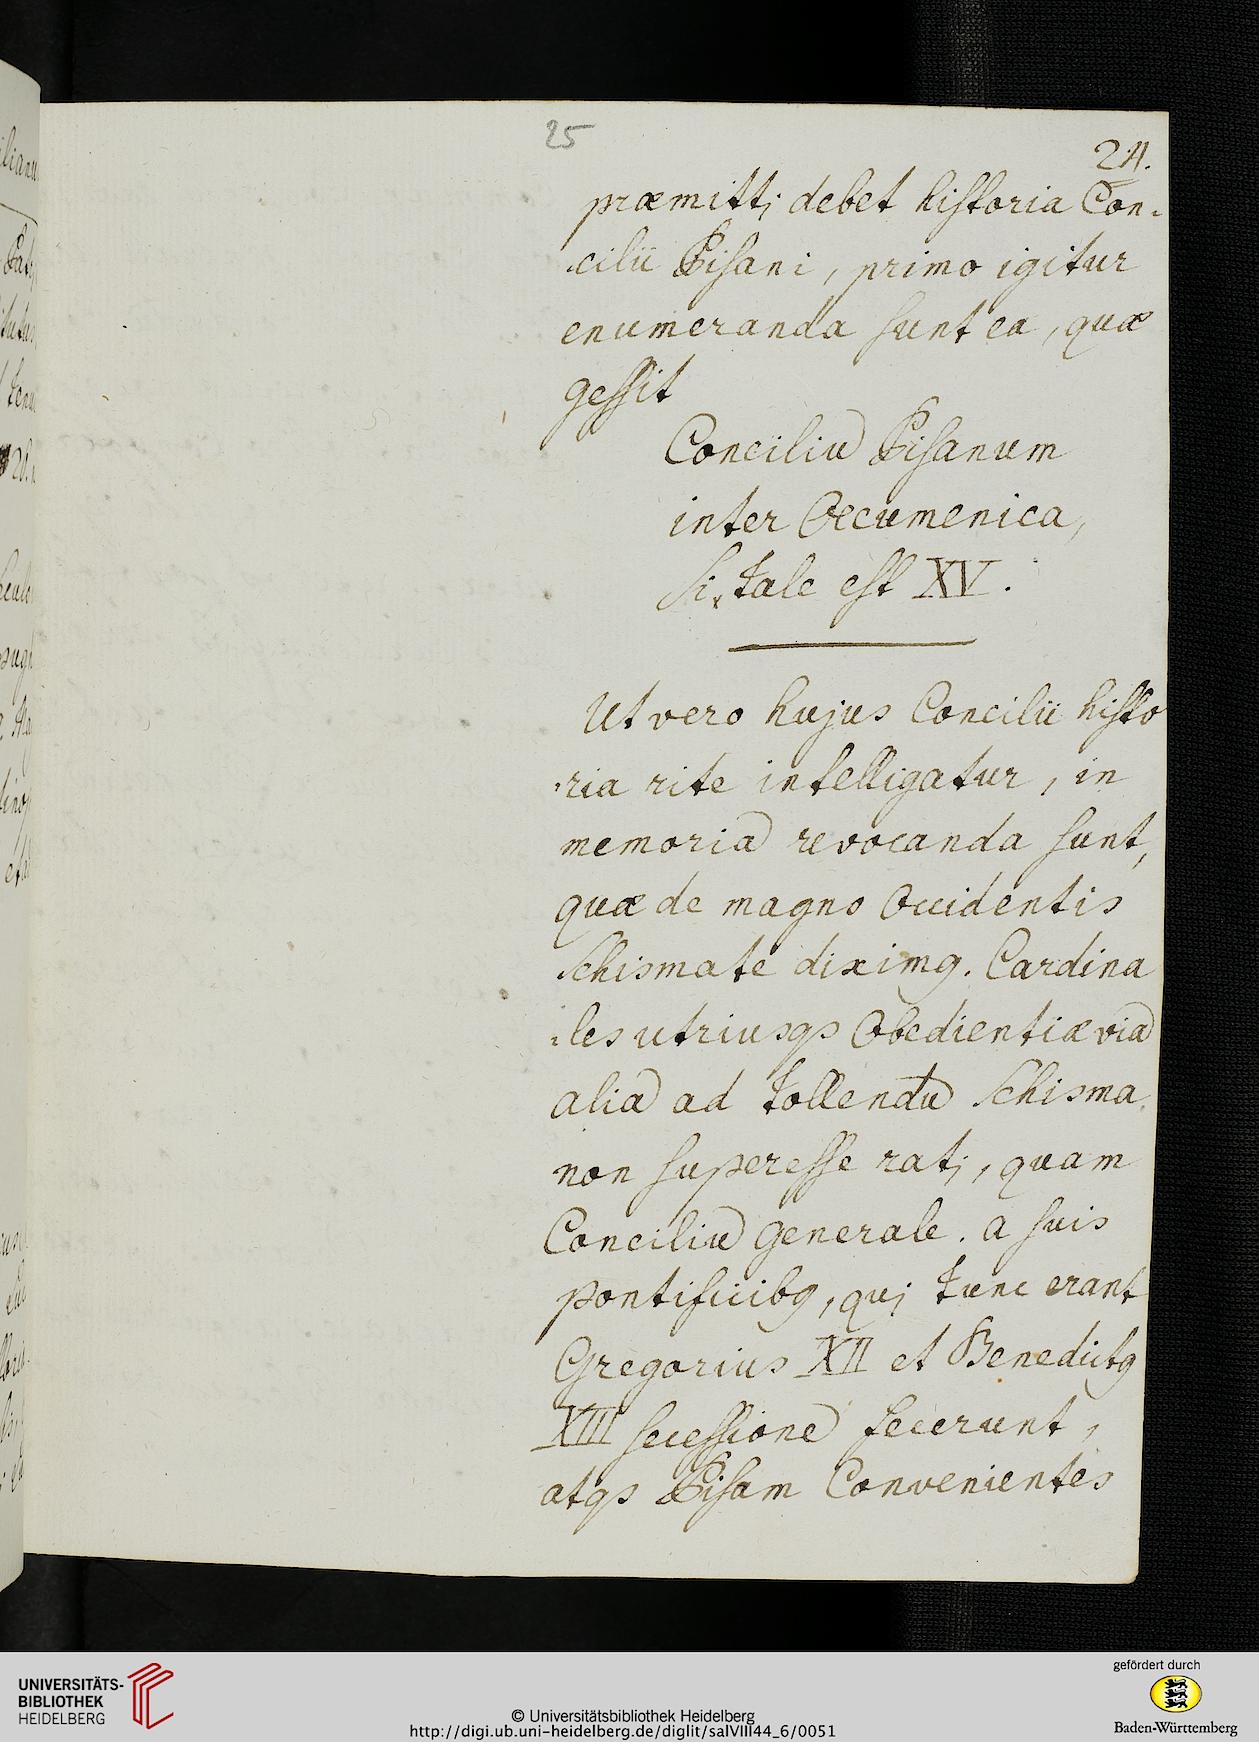 25
24.
præmitti debet historia Con-
-cilii Pisani, primo igitur
enumeranda sunt ea, quæ
gessit
Conciliũ Pisanum
inter Oecumenica,
si tale est XV.
Ut vero hujus Concilii histo
-ria rite intelligatur, in
memoriã revocanda sunt,
quæ de magno Occidentis
Schismate diximꝰ. Cardina
-les utriusqs Obedientiæ viã
aliã ad tollendũ Schisma
non superesse rati, quam
Conciliũ Generale. a suis
pontificibꝰ, qui tunc erant
Gregorius XII et Benedictꝰ
XIII secessionẽ fecerunt,
atqs Pisam Convenientes
UNIVERSITÄTS-
BIBLIOTHEK
HEIDELBERG
© Universitätsbibliothek Heidelberg
http://digi.ub.uni-heidelberg.de/diglit/salVIII44_6/0051
gefördert durch
Baden-Württemberg